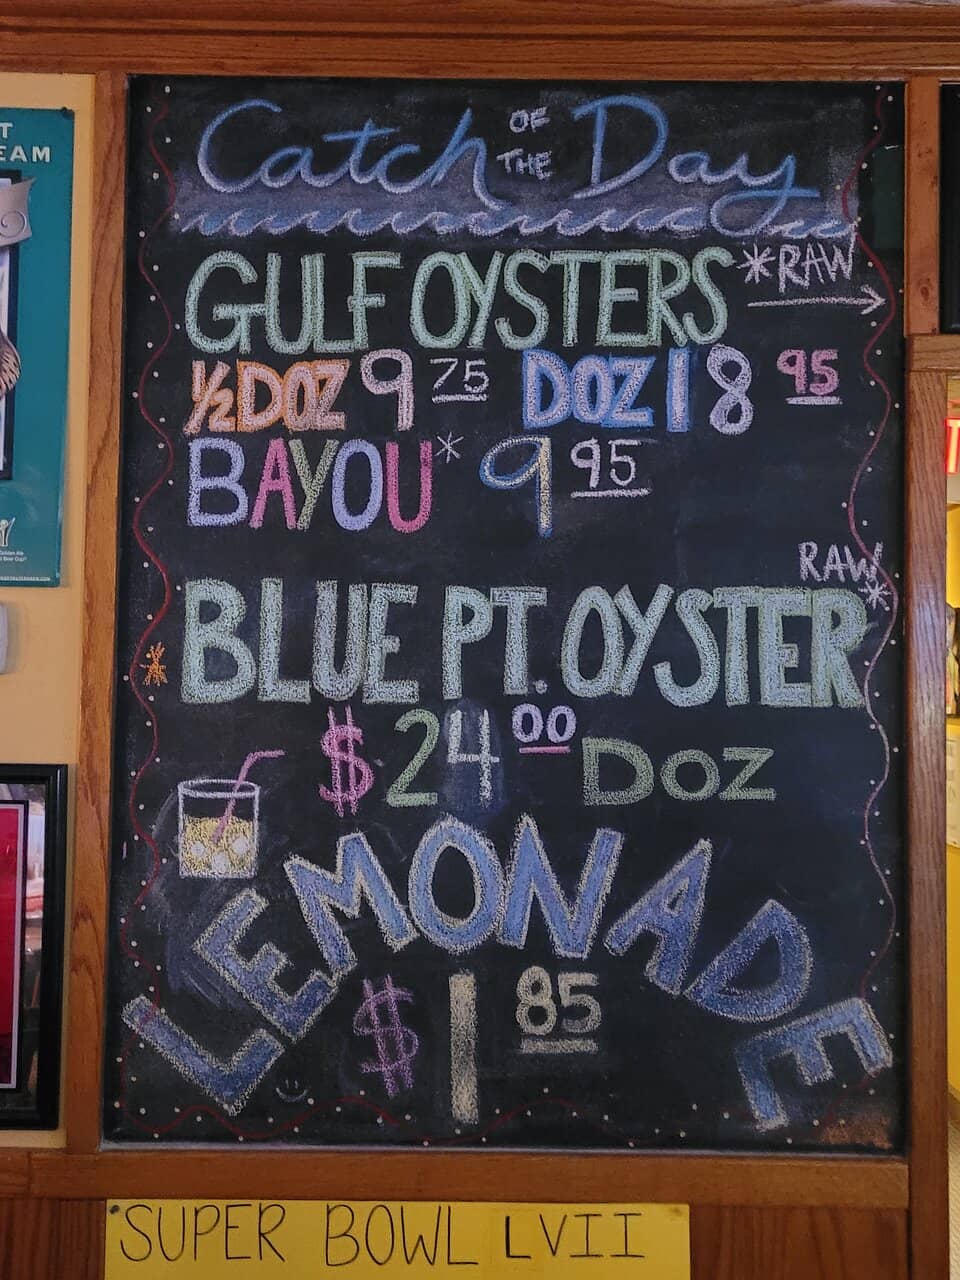 Catch OF THE Day
GULF OYSTERS *RAW
½ DOZ 9 75 DOZ 18 95
BAYOU* 9 95
RAW*
BLUE PT. OYSTER
$24 00 DOZ
LEMONADE
$1 85
SUPER BOWL LVII
T
EAM